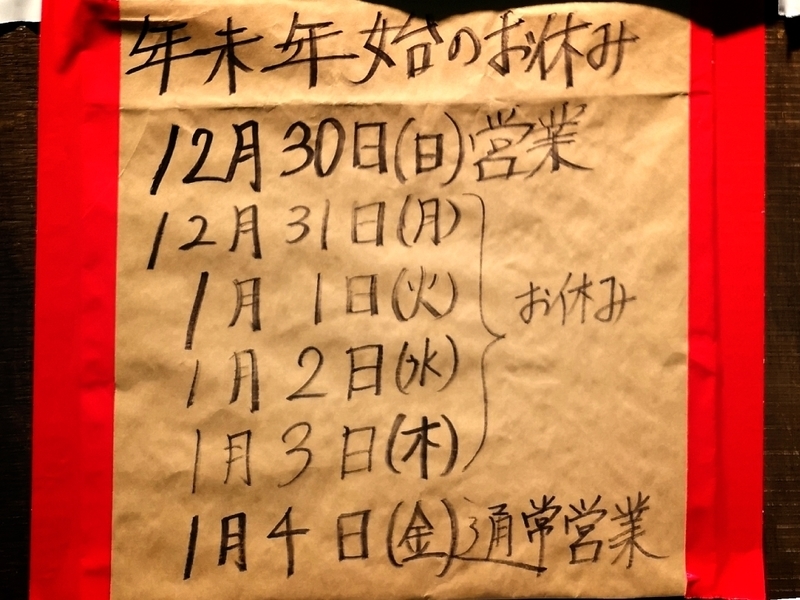 年末年始のお休み
12月30日(日)営業
12月31日(月)
1月1日(火)
1月2日(水)
1月3日(木)
お休み
1月4日(金)通常営業